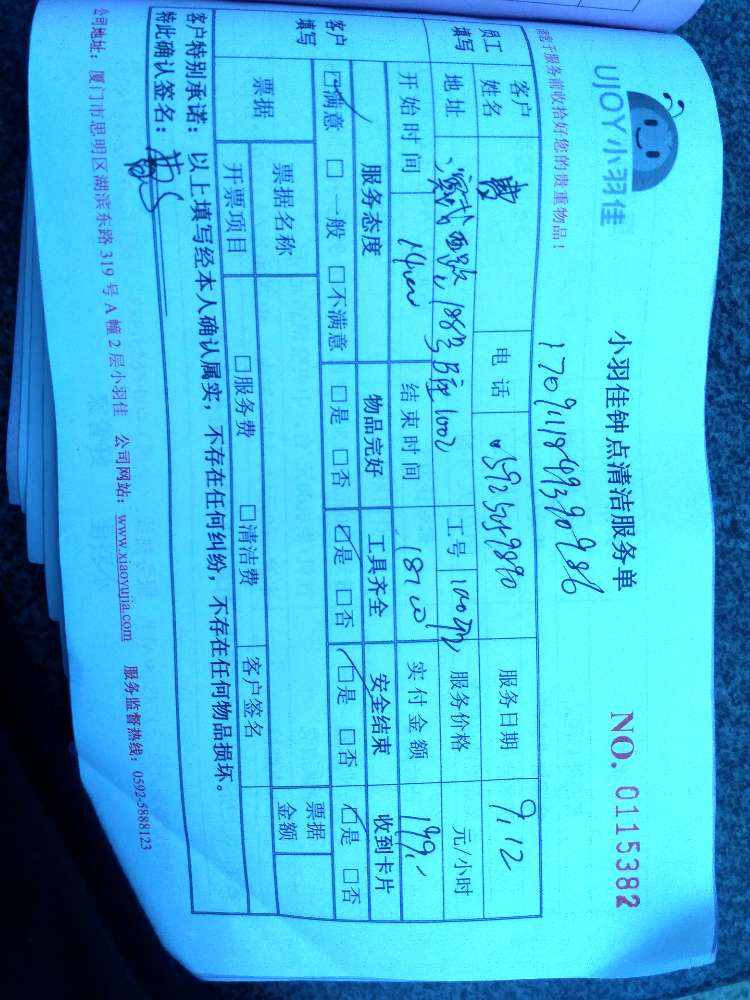 UJOY小羽佳
小羽佳钟点清洁服务单
NO. 0115382
请于服务前收拾好您的贵重物品!
员工填写
客户姓名
电话
服务日期 9.12
地址
工号
服务价格 元/小时
开始时间
结束时间
实付金额 199.-
客户填写
服务态度 物品完好 工具齐全 安全结束 收到卡片
☑满意 □一般 □不满意 □是 □否 ☑是 □否 ☑是 □否 ☑是 □否
票据
票据名称
票据金额
开票项目 □服务费 □清洁费 客户签名
客户特别承诺:以上填写经本人确认属实,不存在任何纠纷,不存在任何物品损坏。
特此确认签名:
公司地址:厦门市思明区湖滨东路319号A幢2层小羽佳 公司网站:www.xiaoyujia.com 服务监督热线:0592-5888123